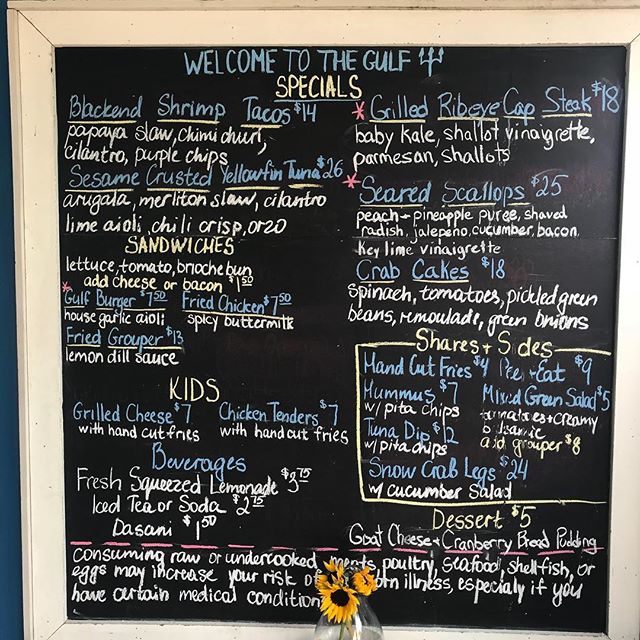 WELCOME TO THE GULF
SPECIALS
Blackend Shrimp Tacos $14
papaya slaw, chimi churi,
cilantro, purple chips
Sesame Crusted Yellowfin Tuna $26
arugala, merliton slaw, cilantro
lime aioli, chili crisp, orzo
SANDWICHES
lettuce, tomato, brioche bun
add cheese or bacon $1.50
* Gulf Burger $7.50
house garlic aioli
Fried Chicken $7.50
spicy buttermilk
Fried Grouper $13
lemon dill sauce
KIDS
Grilled Cheese $7
with hand cut fries
Chicken Tenders $7
with hand cut fries
Beverages
Fresh Squeezed Lemonade $3.75
Iced Tea or Soda $2.75
Dasani $1.50
* Grilled Ribeye Cap Steak $18
baby kale, shallot vinaigrette,
parmesan, shallots
* Seared Scallops $25
peach-pineapple puree, shaved
radish, jalepeno, cucumber, bacon
key lime vinaigrette
Crab Cakes $18
spinach, tomatoes, pickled green
beans, remoulade, green onions
Shares + Sides
Hand Cut Fries $4
Hummus $7
w/ pita chips
Tuna Dip $12
w/ pita chips
Snow Crab Legs $24
w/ cucumber salad
Eat $9
Mixed Green Salad $5
tomatoes + creamy
balsamic
add grouper $8
Dessert $5
Goat Cheese + Cranberry Bread Pudding
consuming raw or undercooked meats, poultry, seafood, shellfish, or
eggs may increase your risk illness, especialy if you
have certain medical condition